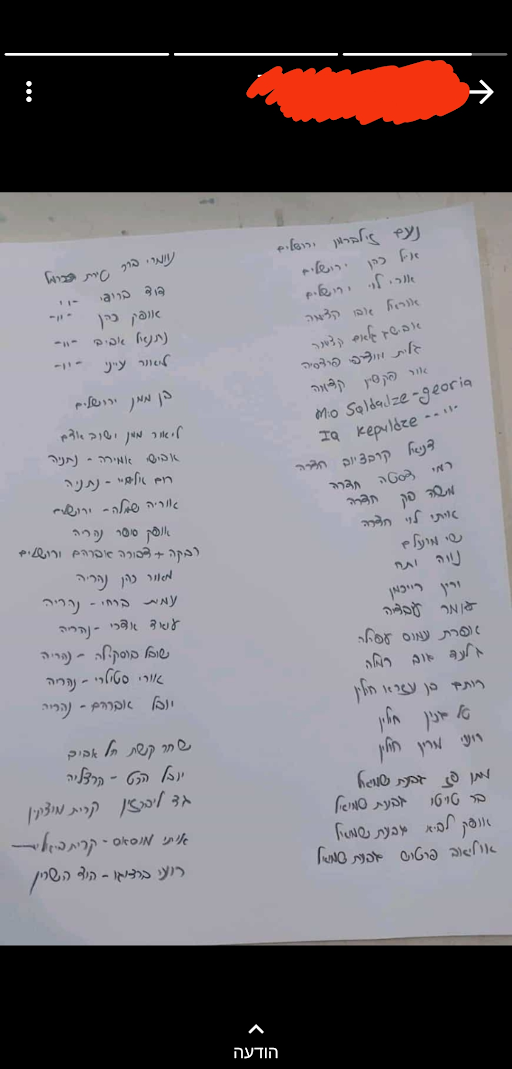 נעם זילברמן ירושלים
אל כהן ירושלים
אורי לוי ירושלים
אוריאל אבו קדימה
אבישג קדימה
גלית פרדסיה
אור קדימה
Mio Saldadze - georia
Ia Kepuldze -"-
דניאל קרבציוב חדרה
רמי חדרה
משה פק חדרה
איתי לוי חדרה
שי
נווה ותח
ירין רייכמן
עומר עובדיה
אופרת עמוס עפולה
גלעד רמלה
רותם בן עזרא חולון
טל חולון
רוני מרין חולון
מתן פז גבעת שמואל
בר טרטו גבעת שמואל
אופק לביא גבעת שמואל
אוליאור פרטוש גבעת שמואל
נועם ברק טירת הכרמל
דוד -"-
אופק כהן -"-
נתנאל אביב -"-
ליאור עייני -"-
בן ממן ירושלים
ליאור ממן ישוב אדם
אבישי אמירה - נתניה
רום - נתניה
אוריה - ירושלים
אופק ספר נהריה
רבקה + צפורה אברהם ירושלים
מאור כהן נהריה
עמית ברחי - נהריה
עידו אדרי - נהריה
שובל בוסקילה - נהריה
אורי סטולרי - נהריה
יובל אברהם - נהריה
שחר קשת תל אביב
יובל הרט - הרצליה
גד ליברזון קרית מוצקין
איתי מוסאס - קרית ביאליק
רועי ברזוגו - הוד השרון
הודעה